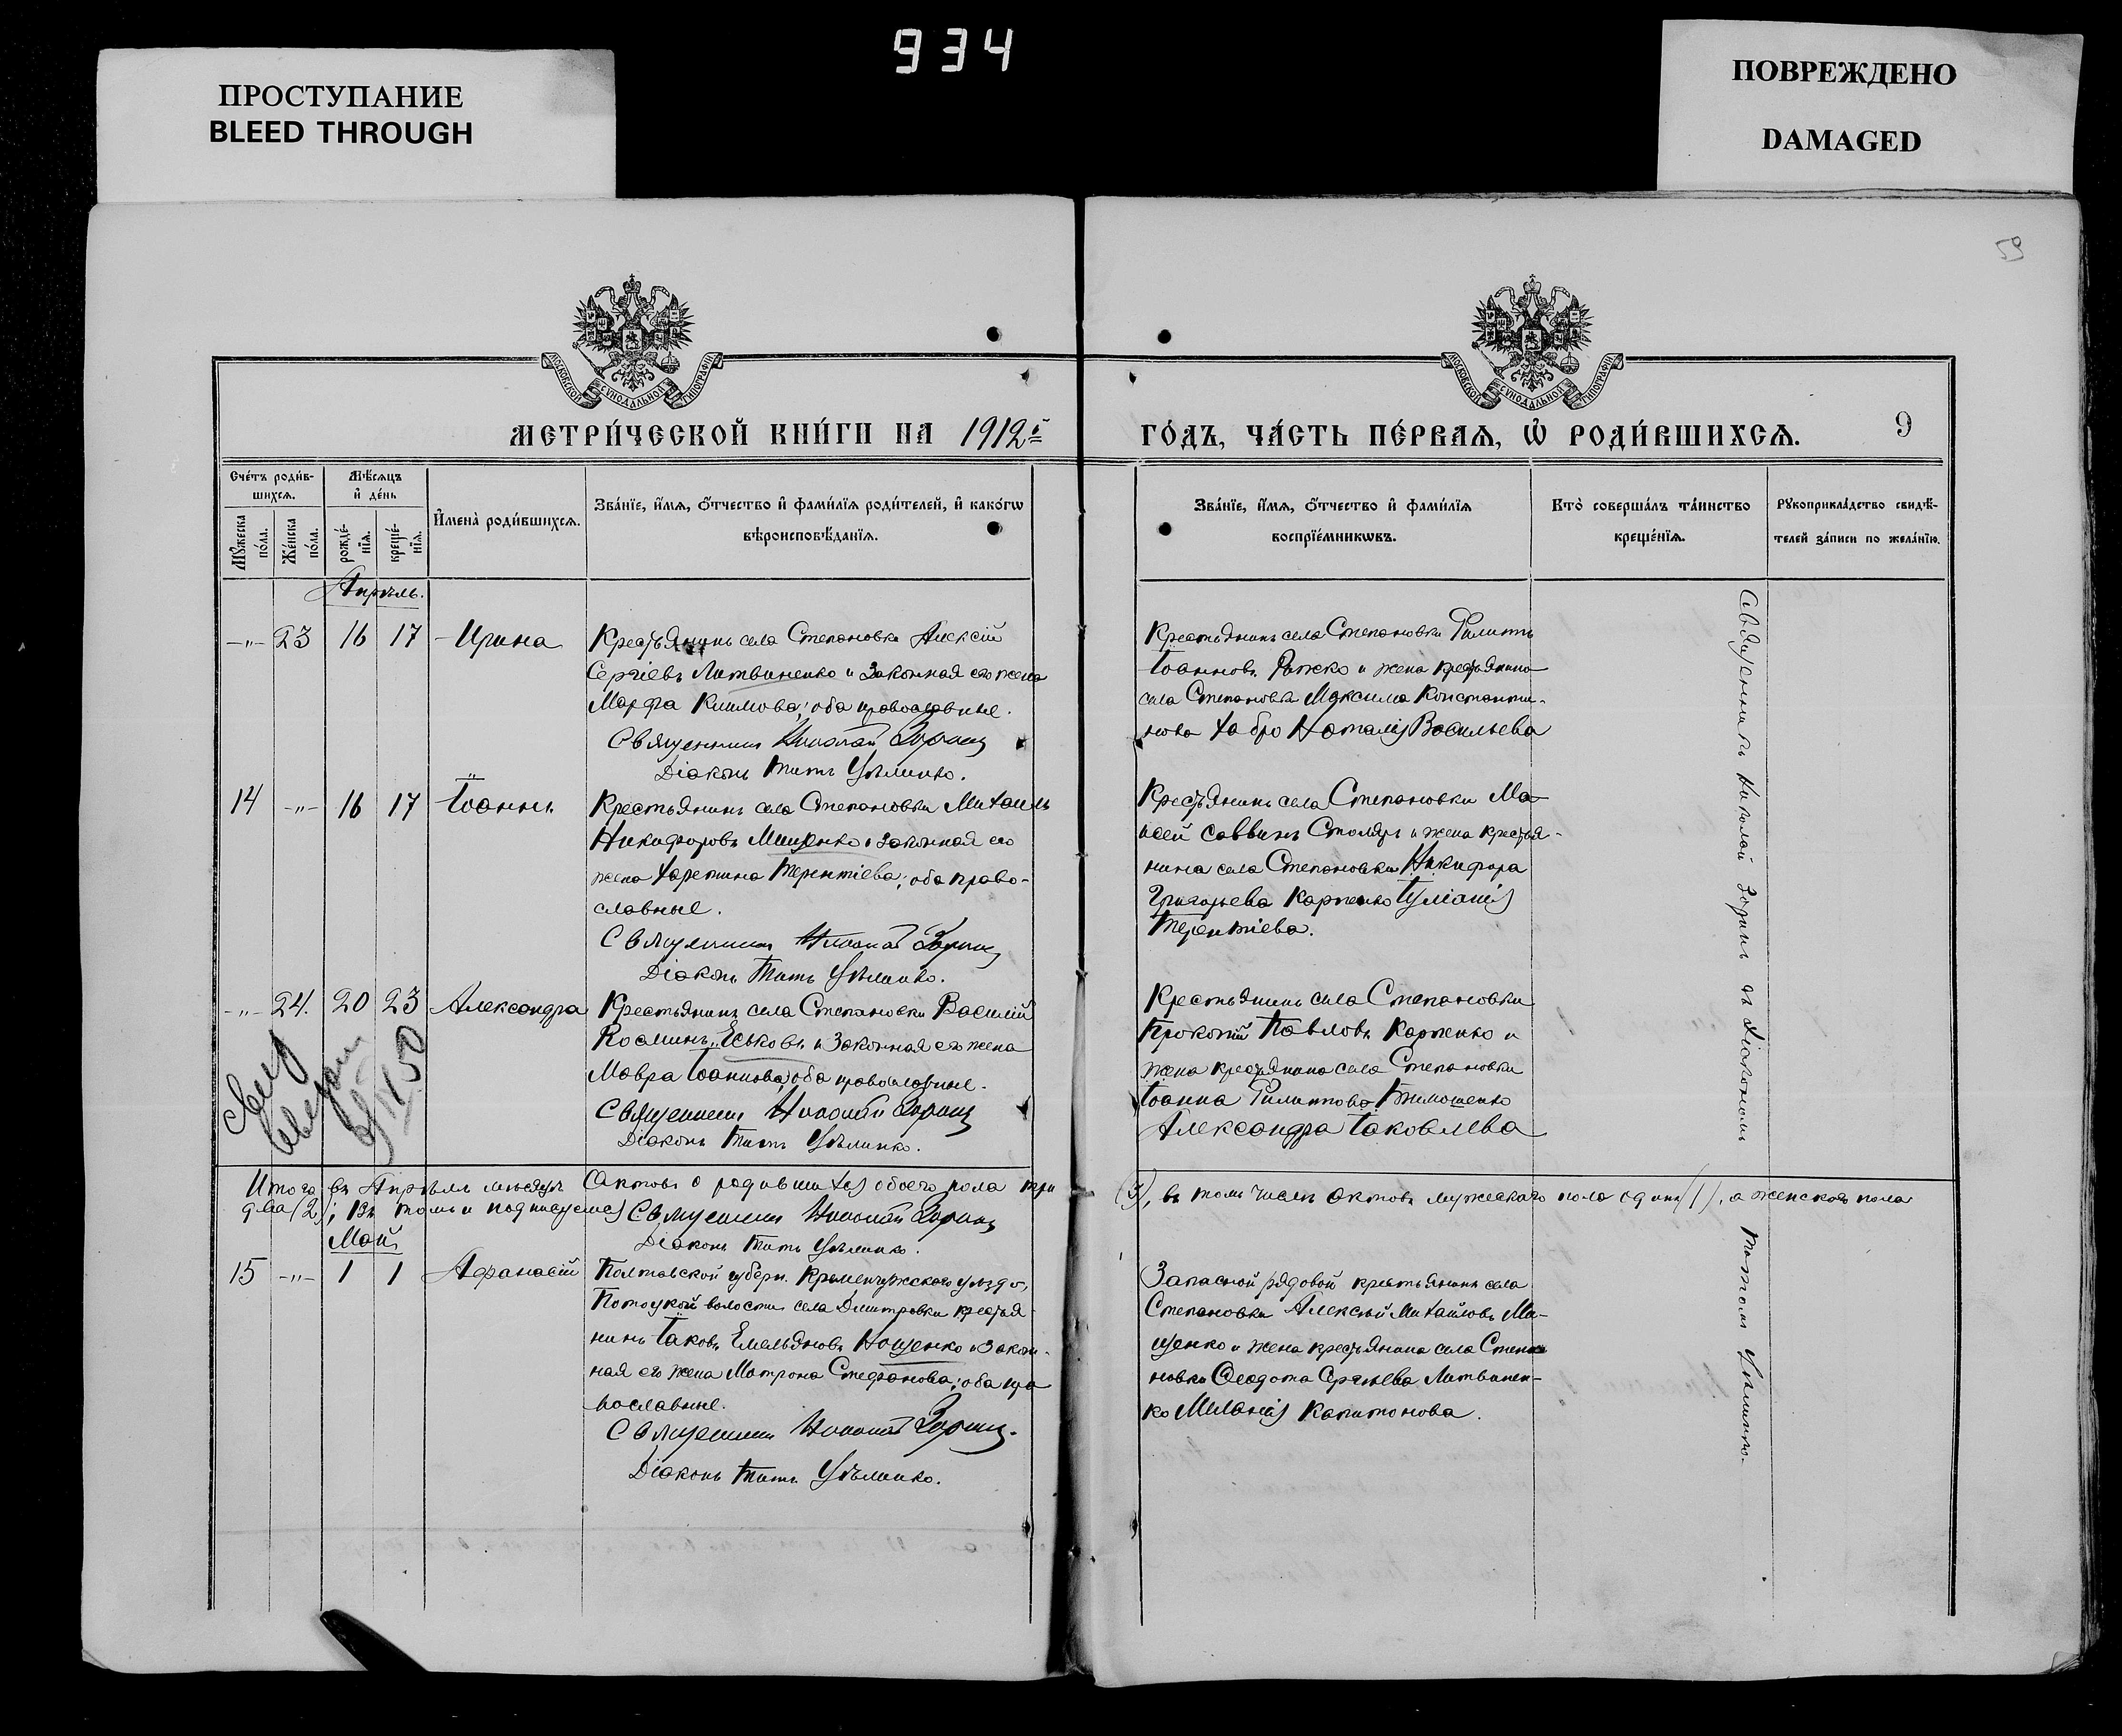 934
ПРОСТУПАНИЕ
BLEED THROUGH
ПОВРЕЖДЕНО
DAMAGED
59
МОСКОВСКОЙ СѴНОДАЛЬНОЙ ТИПОГРАФІИ
МОСКОВСКОЙ СѴНОДАЛЬНОЙ ТИПОГРАФІИ
МЕТРИ́ЧЕСКОЙ КНИ́ГИ НА 1912й
ГО́ДЪ, ЧА́СТЬ ПЕ́РВАѦ, Ѡ҆ РОДИ́ВШИХСѦ.
9
Сче́тъ роди́в-
шихсѧ.
Мꙋ́жеска по́ла.
Же́нска по́ла.
Мѣ́сѧцъ
и҆ де́нь
рожде́-
нїѧ.
креще́-
нїѧ.
И҆мена̀ роди́вшихсѧ.
Зва́нїе, и҆́мѧ, о҆́тчество и҆ фами́лїѧ роди́телей, и҆ како́гѡ
вѣроисповѣ́данїѧ.
Зва́нїе, и҆́мѧ, о҆́тчество и҆ фами́лїѧ
воспрїе́мникѡвъ.
Кто̀ соверша́лъ та́инство
креще́нїѧ.
Рꙋкоприкла́дство свидѣ́-
телей за́писи по жела́нїю.
Апрѣль.
-"- 23 16 17 Ирина
Крестьянинъ села Степановки Алексій
Сергіевъ Литвиненко и законная его жена
Марфа Климова; оба православные.
Священникъ Николай Зоринъ
Діаконъ Титъ
Крестьянинъ села Степановки Филиппъ
Іоанновъ Рыжко и жена крестьянина
села Степановки Максима Константи-
нова Хабро Наталія Васильева
14 -"- 16 17 Іоаннъ
Крестьянинъ села Степановки Михаилъ
Никифоровъ Мищенко и законная его
жена Харитина Терентіева; оба право-
славные.
Священникъ Николай Зоринъ
Діаконъ Титъ
Крестьянинъ села Степановки Мо-
исей Саввинъ Столяръ и жена крестья-
нина села Степановки Никифора
Григорьева Карпенко Іуліанія
Терентіева.
-"- 24. 20 23 Александра
Крестьянинъ села Степановки Василій
Косминъ Еськовъ и законная его жена
Мавра Іоаннова; оба православные.
Священникъ Николай Зоринъ
Діаконъ Титъ
Крестьянинъ села Степановки
Прокопій Павловъ Карпенко и
жена крестьянина села Степановки
Іоанна Филиппова Тимошенко
Александра Іаковлева
Священникъ Николай Зоринъ съ Діакономъ
Титомъ
Итого въ Апрѣлѣ мѣсяцѣ актовъ о родившихся обоего пола три (3), въ томъ числѣ актовъ мужескаго пола одинъ (1), а женскаго пола
два (2); въ томъ и подписуемся Священникъ Николай Зоринъ
Діаконъ Титъ
Май
15 -"- 1 1 Афанасій
Полтавской губерн. Кременчужскаго уѣзда,
Потоцкой волости села Дмитровки крестья-
нинъ Іаковъ Емельяновъ Нощенко и закон-
ная его жена Матрона Стефанова; оба пра-
вославные.
Священникъ Николай Зоринъ.
Діаконъ Титъ
Запасной рядовой крестьянинъ села
Степановки Алексѣй Михайловъ Ми-
щенко и жена крестьянина села Степа-
новки Ѳеодота Сергѣева Литвинен-
ко Меланія Капитонова.